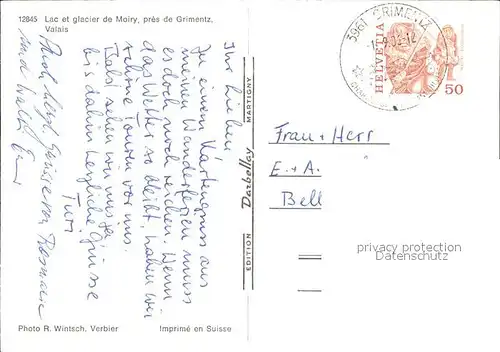 12845 Lac et glacier de Moiry, près de Grimentz,
Valais
Ihr Lieben
Zu einem Kartengruss aus
meinen Wanderferien muss
es doch noch reichen. Wenn
das Wetter so bleibt, haben wir
schöne Touren vor uns.
Bald sehen wir uns ja
bis dahin herzliche Grüsse
Turi
Auch liebe Grüsse von Rosmarie
und
Photo R. Wintsch, Verbier
Imprimé en Suisse
EDITION Darbellay MARTIGNY
3961 GRIMENTZ
HELVETIA
50
Frau + Herr
E. + A.
Bell
privacy protection
Datenschutz